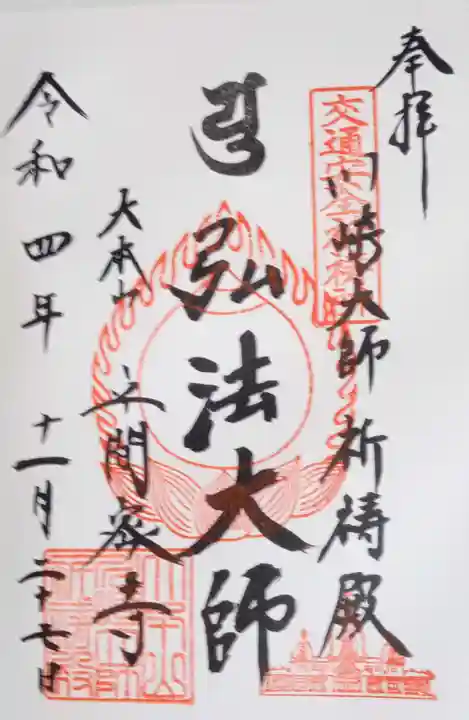 奉拝
川崎大師祈祷殿
交通安全祈祷
弘法大師
大本山
平間寺
令和四年十一月二十七日